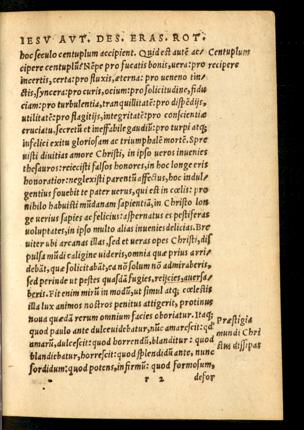 IESV AVT. DES. ERAS. ROT.
hoc seculo centuplum accipient. Quid est autē ac/
Centuplum
cipere centuplū? Nēpe pro fucatis bonis, uera: pro
recipere
incertis, certa: pro fluxis, æterna: pro ueneno tin/
ctis, syncera: pro curis, ocium: pro solicitudine, fidu
ciam: pro turbulentia, tranquillitatē: pro dispēdijs,
utilitatē: pro flagitijs, integritatē: pro conscientiæ
cruciatu, secretū et ineffabile gaudiū: pro turpi atq;
infelici exitu gloriosam ac triumphalē mortē. Spre
uisti diuitias amore Christi, in ipso ueros inuenies
thesauros: reiecisti falsos honores, in hoc longe eris
honoratior: neglexisti parentū affectus, hoc indul
gentius fouebit te pater uerus, qui est in cœlis: pro
nihilo habuisti mūdanam sapientiā, in Christo lon
ge uerius sapies ac felicius: aspernatus es pestiferas
uoluptates, in ipso multo alias inuenies delicias. Bre
uiter ubi arcanas illas, sed et ueras opes Christi, dis
pulsa mūdi caligine uideris, omnia quæ prius arri
debāt, quæ solicitabāt, ea nō solum nō admiraberis,
sed perinde ut pestes quasdā fugies, reijcies, auersa
beris. Fit enim mirū in modū, ut simul atq; cœlestis
illa lux animos nostros penitus attigerit, protinus
noua quædā rerum omnium facies oboriatur. Itaq;
quod paulo ante dulce uidebatur, nūc amarescit: qd
amarū, dulcescit: quod horrendū, blanditur: quod
blandiebatur, horrescit: quod splendidū ante, nunc
sordidum: quod potens, infirmū: quod formosum,
Præstigia
mundi Chri
stus dissipat
r 2
defor